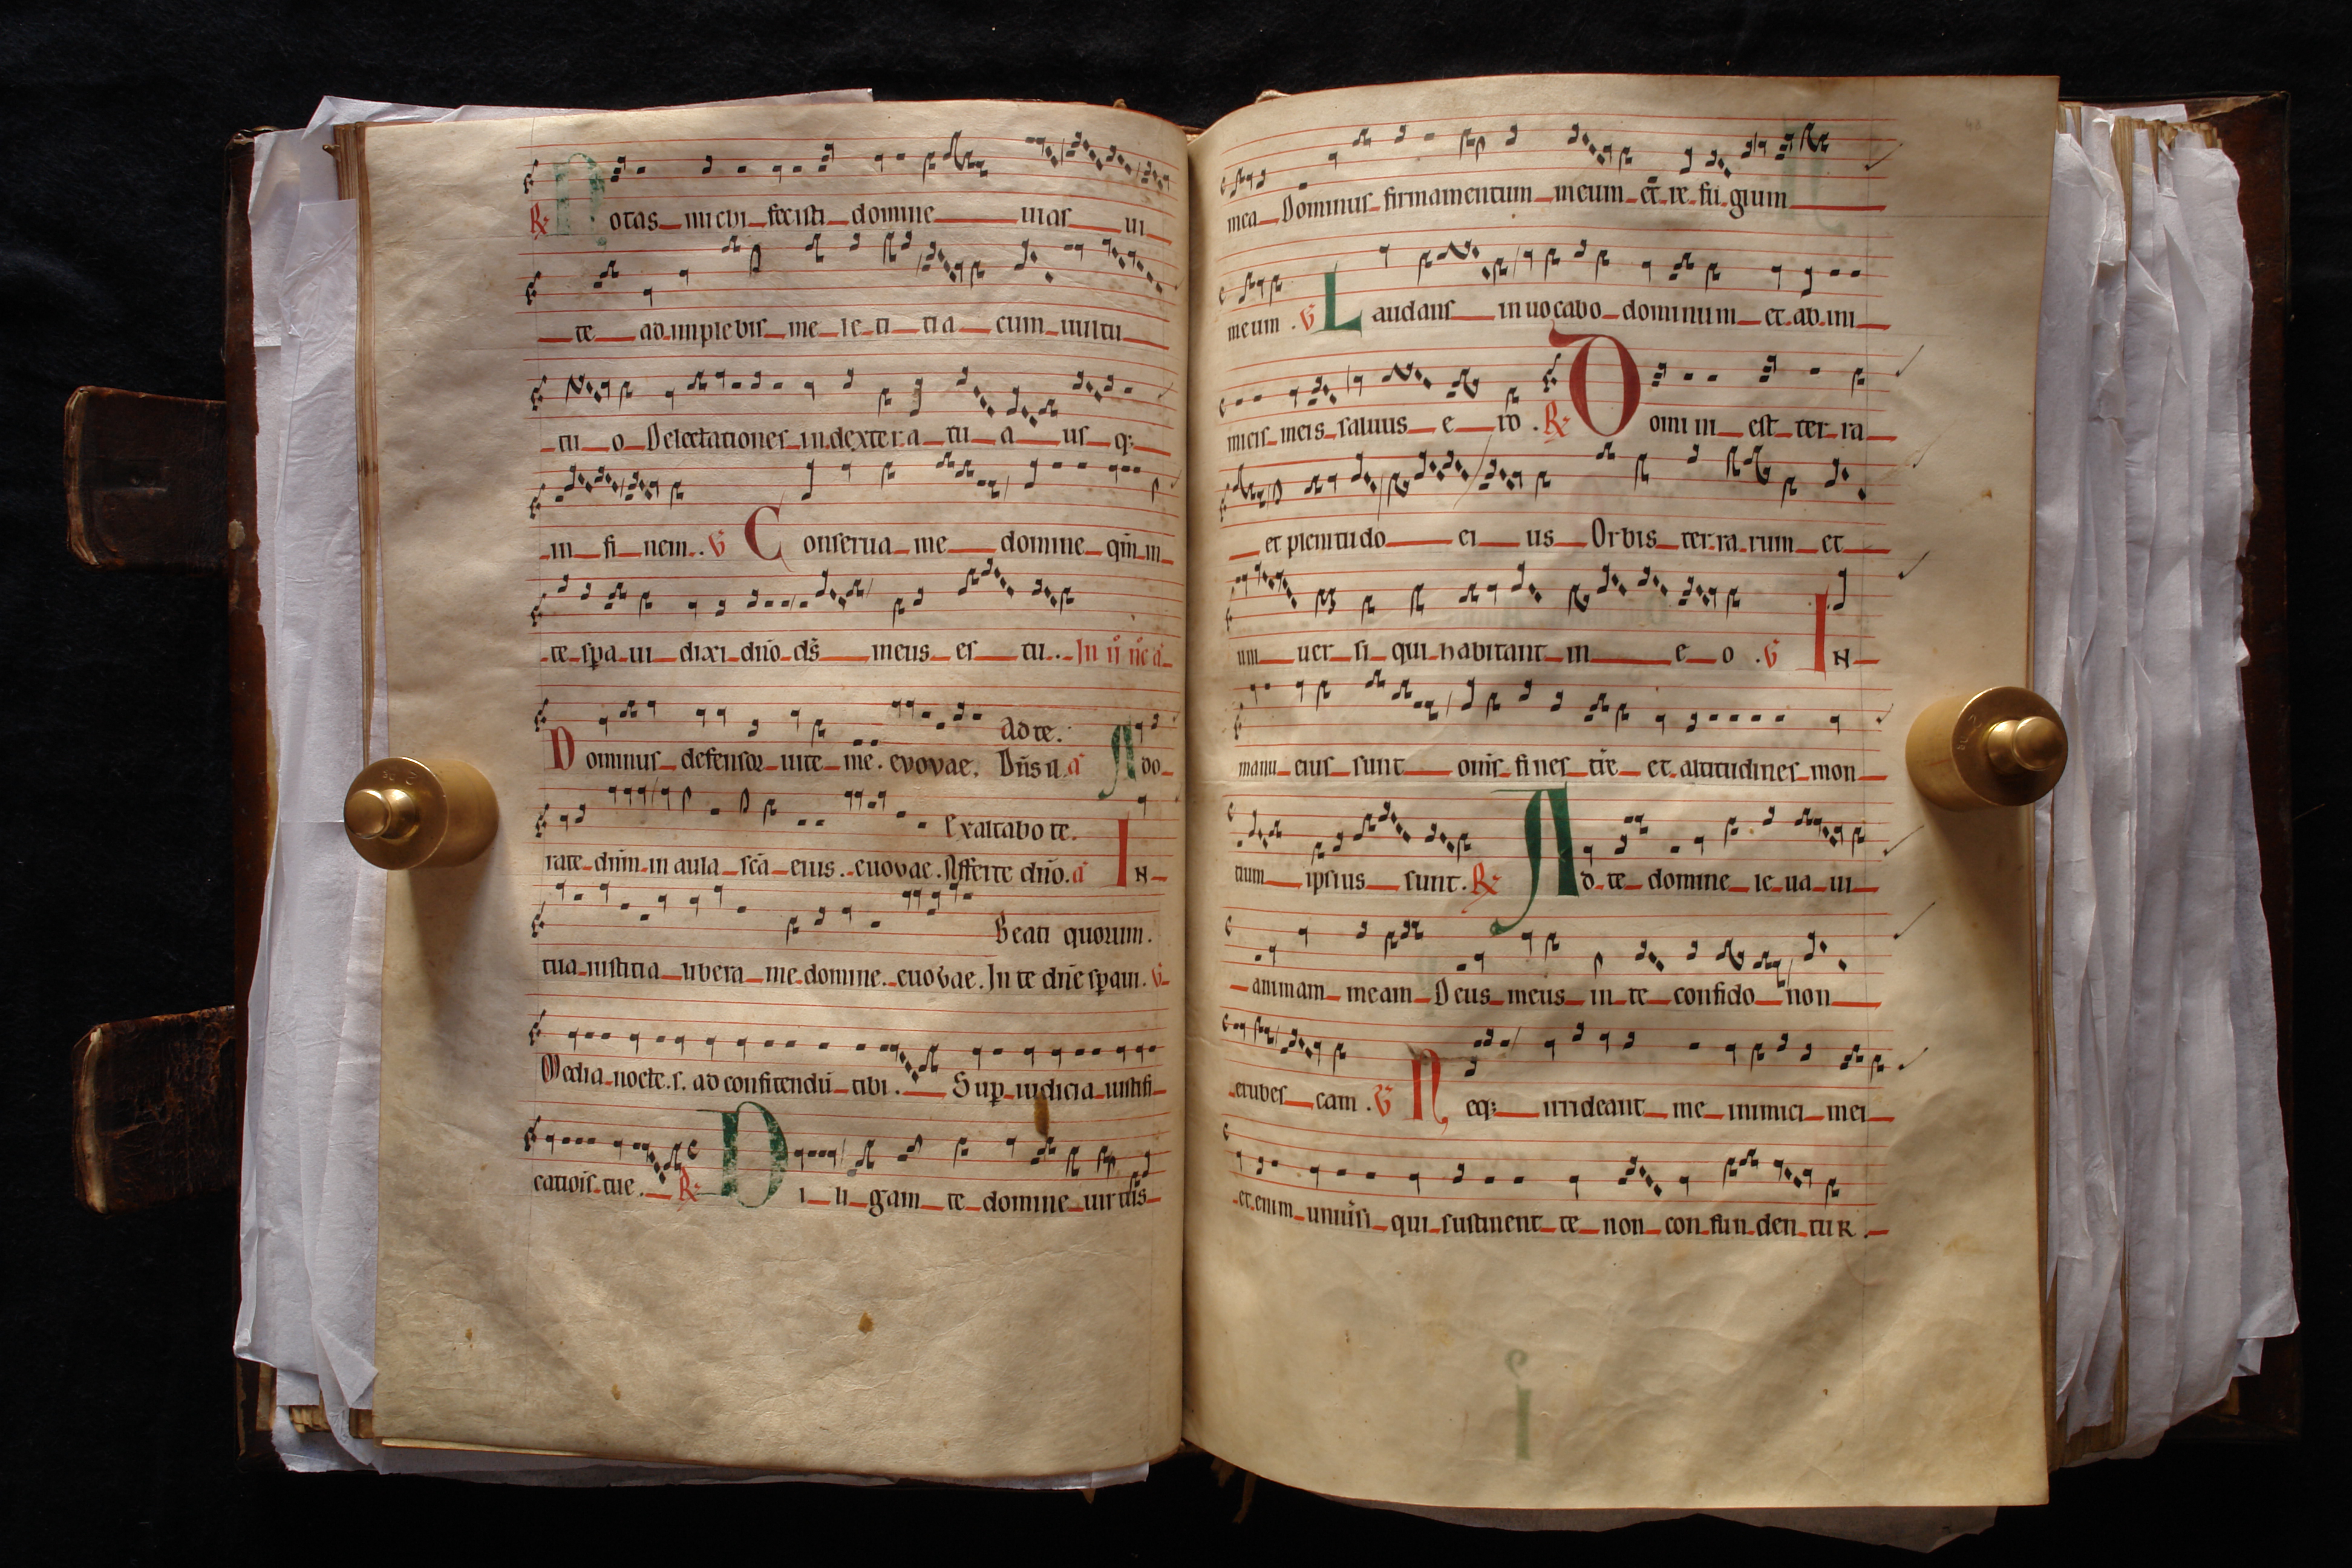 ℟ Notas michi fecisti domine uias ui
te adimplebis me le ti tia cum uultu
tu o Delectationes in dextera tu a us q;
in fi nem. ℣ Conserua me domine qm̄ in
te spa ui dixi dn̄o ds̄ meus es tu. In ij nc̄ a
Ad te.
Dominus defensor uite me. evovae. Dn̄s il a Ado
Exaltabo te.
rate dn̄m in aula sc̄a eius. euouae. Afferte dn̄o. a IN
Beati quorum.
tua iustitia libera me domine. euouae. In te dn̄e spaui. ℣
Media nocte. s. ad confitendū tibi. Sup iudicia iustifi
catiois tue. ℟ Di li gam te domine uirtus
mea Dominus firmamentum meum et re fu gium
meum. ℣ Laudans inuocabo dominum et ab ini
micis meis saluus e ro. ℟ Domini est ter ra
et plenitudo ei us Orbis ter ra rum et
uni uer si qui habitant in e o. ℣ IN
manu eius sunt om̄s fines tr̄e et altitudines mon
tium ipsius sunt. ℟ Ad te domine le ua ui
animam meam Deus meus in te confido non
erubes cam. ℣ Neq; irrideant me inimici mei
et enim uniūsi qui sustinent te non con fun den tuR.